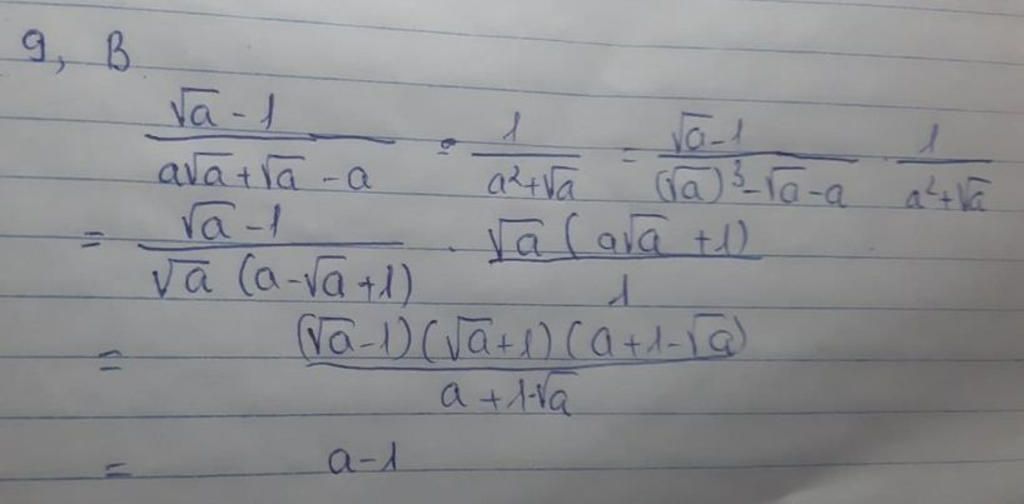 9, B
(√a - 1)/(a√a + √a - a) : 1/(a² + √a) = (√a - 1)/((√a)³ - √a - a) · 1/(a² + √a)
= (√a - 1)/(√a (a - √a + 1)) · (√a (a√a + 1))/1
= ((√a - 1)(√a + 1)(a + 1 - √a))/(a + 1 - √a)
= a - 1